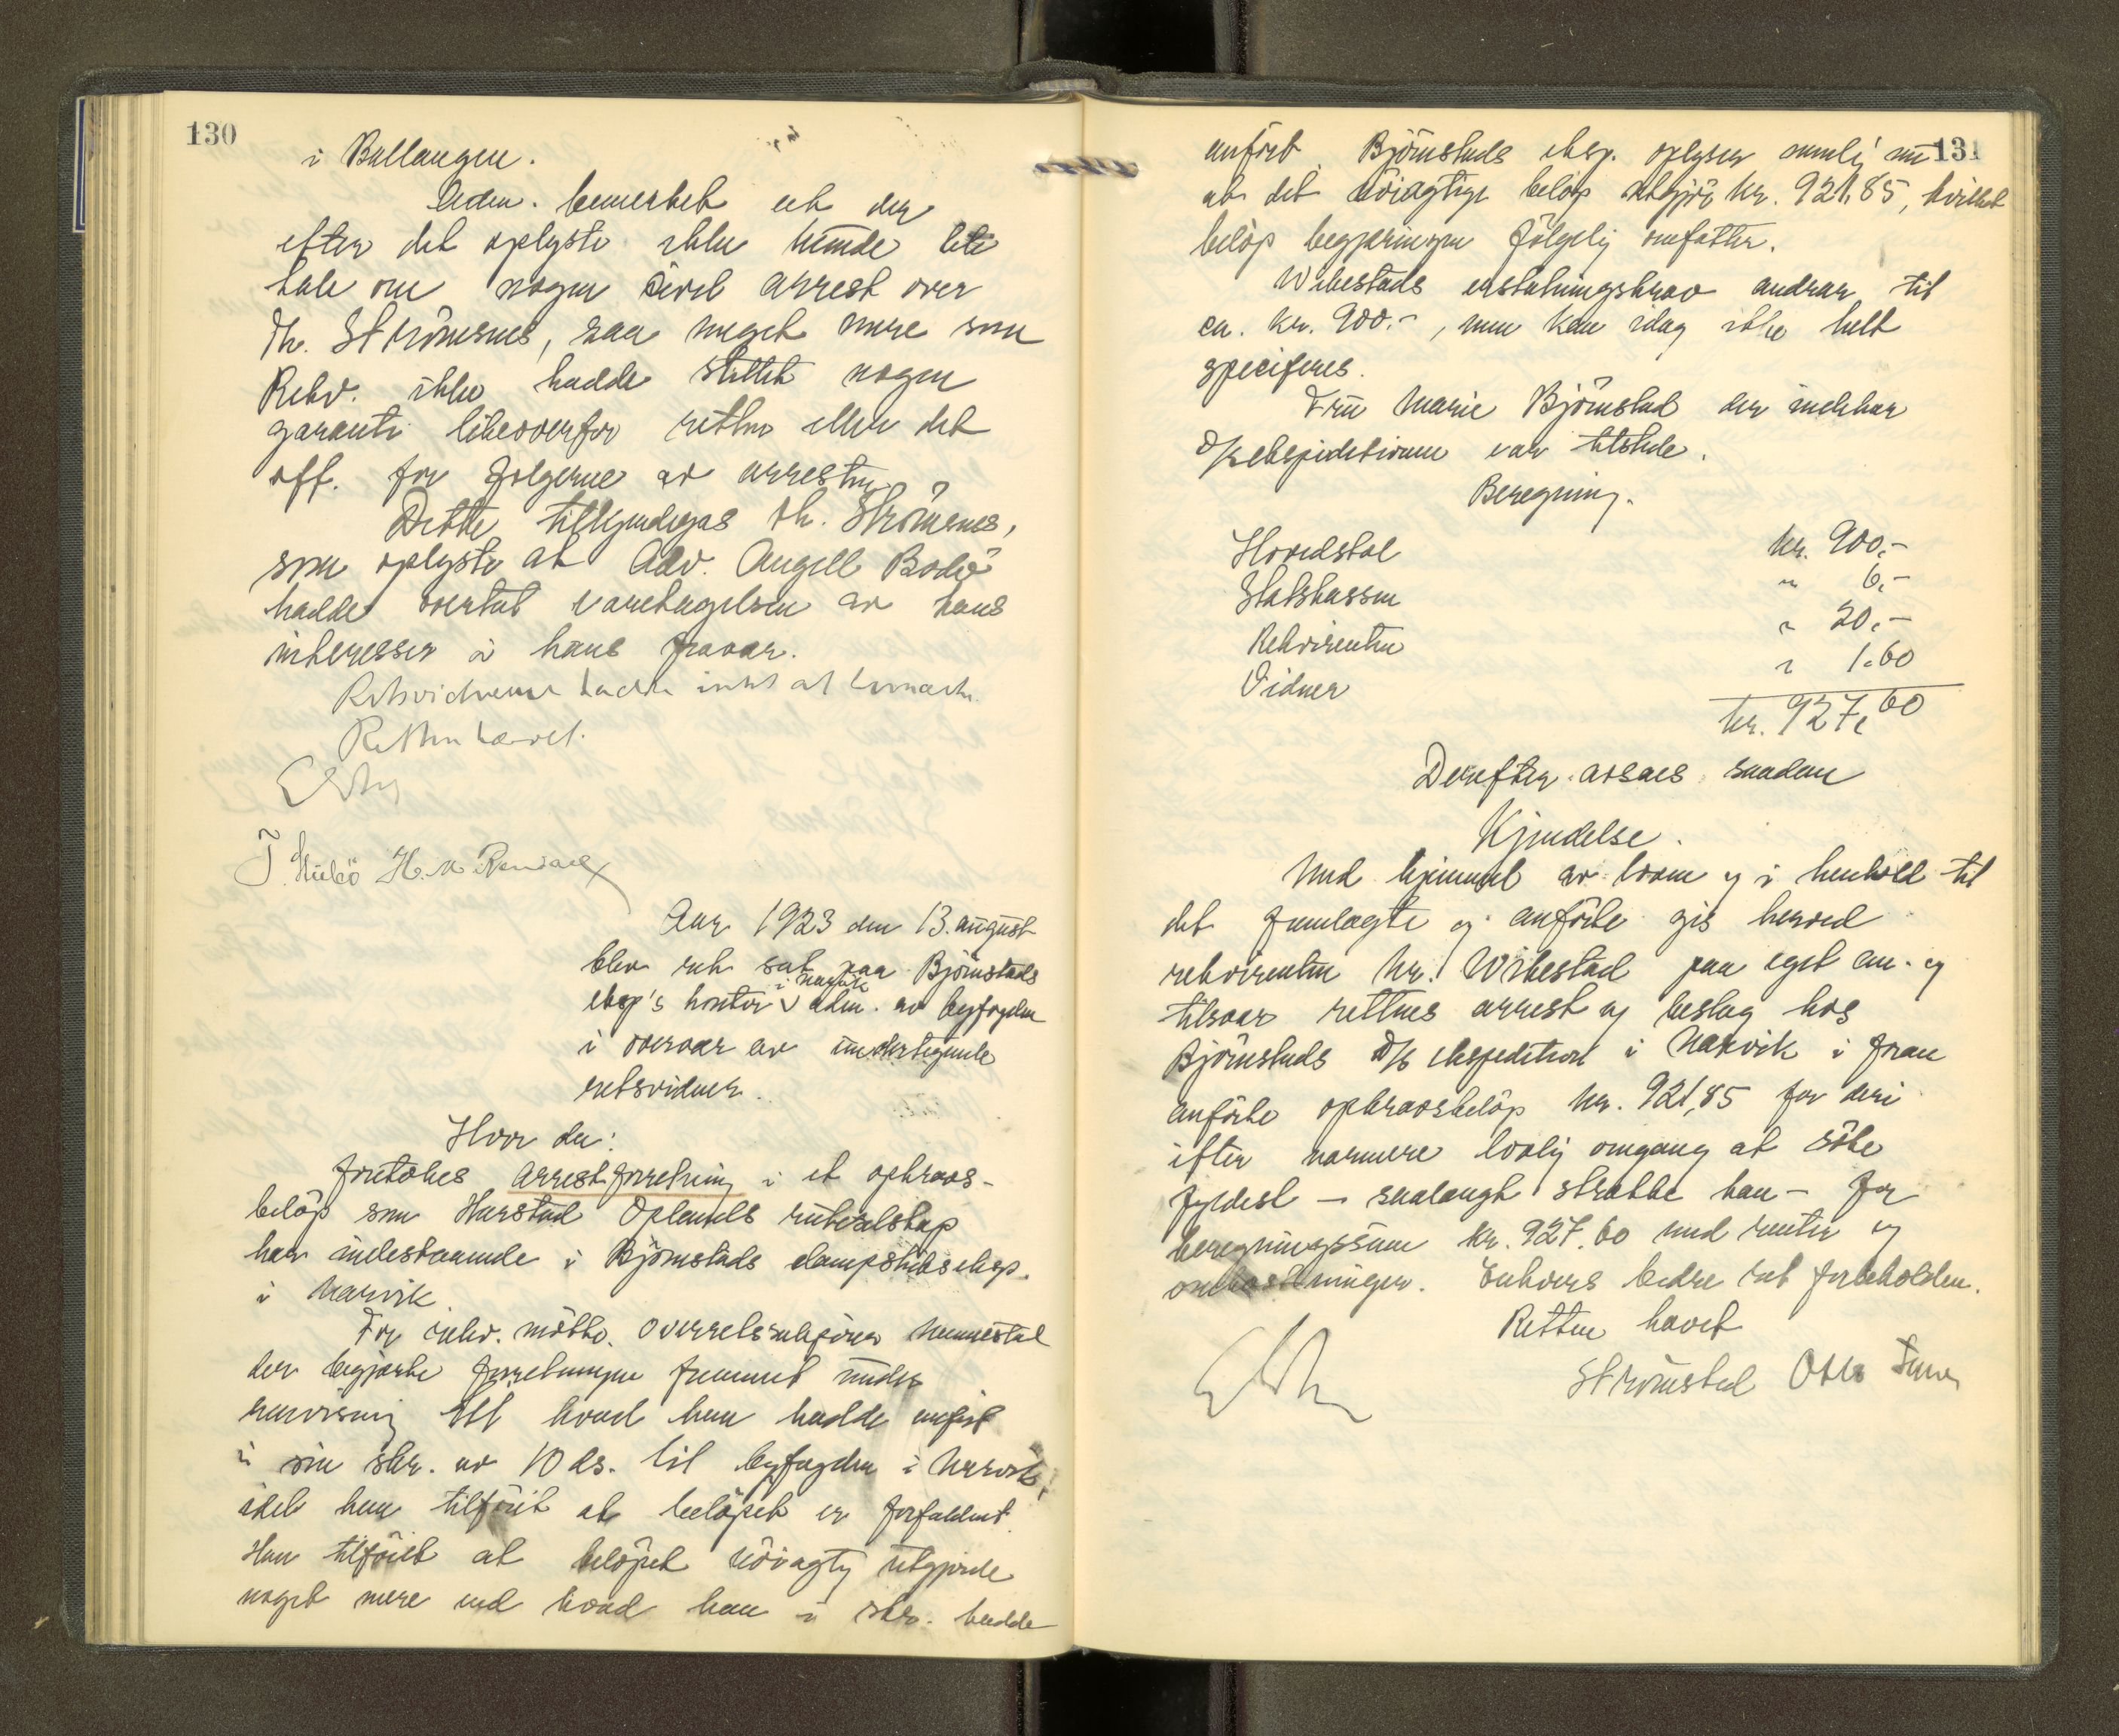 130
i Ballangen.
Adm. bemerket at der
efter det oplyste ikke kunde bli
tale om nogen civil arrest over
Th. Strömsnes, saa meget mere som
Rekv. ikke hadde stillet nogen
garanti likeoverfor retten eller det
off. for følgerne av arresten.
Dette tilkjendegas th. Strömsnes,
som oplyste at Adv. Angell Bodö
hadde overtat varetagelsen av hans
interesser i hans fravær.
Retsvidnerne hadde intet at bemerke.
Retten hævet.
Aar 1923 den 13. august
blev ret sat paa Björnstads
eksp's kontor i Narvik adm. av byfogden
i overvær av undertegnede
retsvidner.
Hvor da:
foretokes arrestforretning i et opkrævs-
beløp som Harstad Oplands ruteselskap
har indestaaende i Björnstads dampskibseksp.
i Narvik.
For rekv. møtte overretssakfører
der begjærte forretningen fremmet under
henvisning til hvad han hadde anført
i sin skr. av 10 ds. til byfogden i Narvik,
idet han tilføiet at beløpet er forfaldent.
Han tilføiet at beløpet nöiagtig utgjorde
noget mere end hvad han i skr. hadde
131
anført. Björnstads eksp. oplyser nemlig nu
at det nöiagtige beløp utgjör kr. 921,85, hvilket
beløp begjæringen følgelig omfatter.
Wibestads erstatningskrav andrar til
ca. kr. 900.-, men kan idag ikke helt
specifieres.
Fru Marie Björnstad der indehar
D/s ekspeditionen var tilstede.
Beregning.
Hovedstol kr. 900,-
Statskassen " 6,-
Rekvirenten " 20,-
Vidner " 1.60
kr. 927,60
Derefter avsaes saadan
Kjendelse.
Med hjemmel av loven og i henhold til
det fremlagte og anførte gis herved
rekvirenten Kr. Wibestad paa eget an- og
tilsvar rettens arrest og beslag hos
Björnstads D/s ekspedition i Narvik i foran
anførte opkrævsbeløp kr. 921,85 for deri
efter nærmere lovlig omgang at söke
fyldest – saalangt strække kan – for
beregningssum kr. 927.60 med renter og
omkostninger. Enhvers bedre ret forbeholden.
Retten hævet
Strömstad Otto